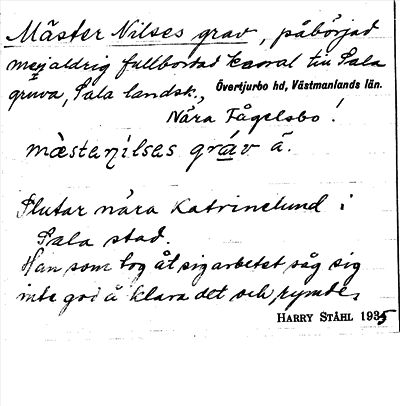 Mäster Nilses grav, påbörjad
men aldrig fullbordad kanal till Sala
gruva, Sala landsk., Övertjurbo hd, Västmanlands län.
Nära Fågelsbo!
mästaŋilsas gráv ä.
Slutar nära Katrinelund i
Sala stad.
Han som tog åt sig arbetet såg sig
inte god å klara det och rymde,
HARRY STÅHL 1935